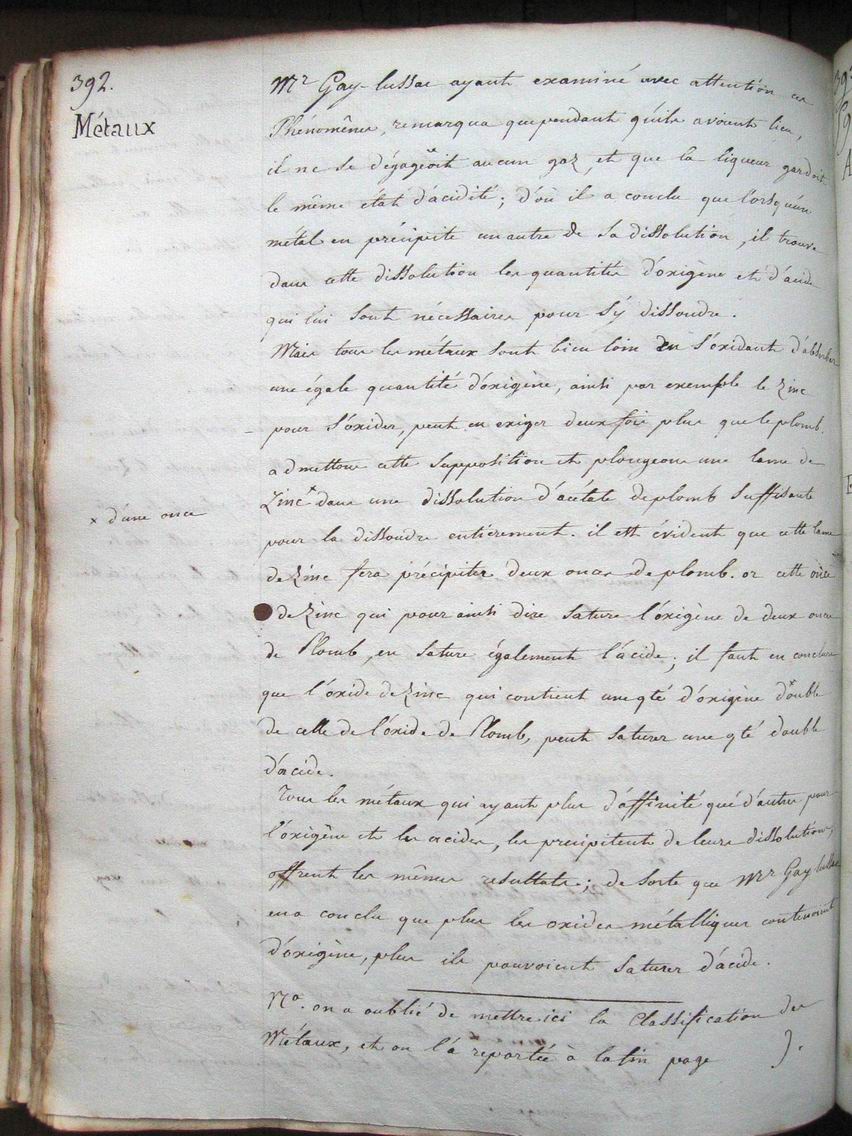 392.
Métaux
Mr Gay-lussac ayant examiné avec attention ces
Phénomênes, remarqua que pendant qu'ils avoient lieu,
il ne se dégageoit aucun gaz, et que la liqueur gardoit
le même état d'acidité; d'où il a conclu que lorsqu'un
métal en précipite un autre de sa dissolution, il trouve
dans cette dissolution les quantités d'oxigène et d'acide
qui lui sont nécessaires pour s'y dissoudre.
Mais tous les métaux sont bien loin en s'oxidant d'absorber
une égale quantité d'oxigène, ainsi par exemple le Zinc
pour s'oxider, peut en exiger deux fois plus que le plomb.
admettons cette supposition et plongeons une lame de
Zinc x dans une dissolution d'acétate de plomb suffisante
x d'une once
pour la dissoudre entièrement. il est évident que cette lame
de Zinc fera précipiter deux onces de plomb. or cette once
de Zinc qui pour ainsi dire sature l'oxigène de deux onces
de Plomb, en sature également l'acide; il faut en conclure
que l'oxide de Zinc qui contient une qté d'oxigène double
de celle de l'oxide de Plomb, peut saturer une qté double
d'acide.
Tous les métaux qui ayant plus d'affinité que d'autres pour
l'oxigène et les acides, les précipitent de leurs dissolutions,
offrent les mêmes resultats; de sorte que Mr Gay-lussac
en a conclu que plus les oxides métalliques contenoient
d'oxigène, plus ils pouvoient saturer d'acide.
Na. on a oublié de mettre ici la Classification des
Métaux, et on l'a reportée à la fin page ).